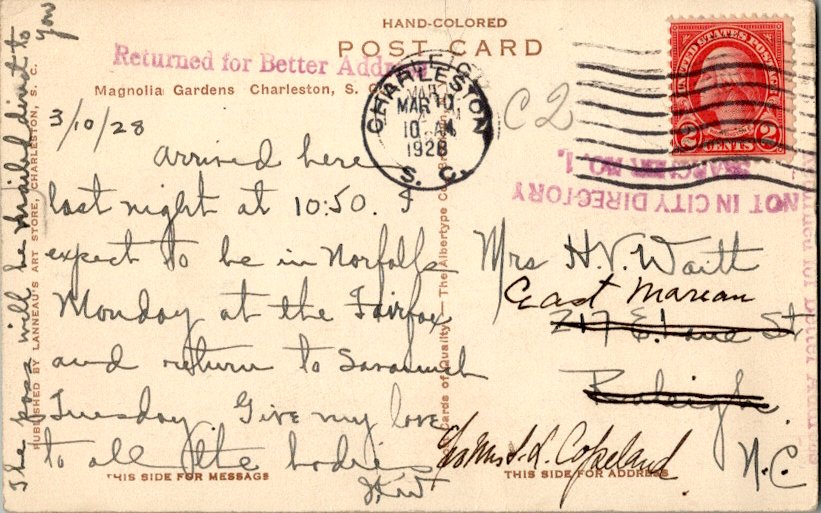 HAND-COLORED
POST CARD
Returned for Better Address
Magnolia Gardens Charleston, S. C.
3/10/28
arrived here
last night at 10:50. I
expect to be in Norfolk
Monday at the Fairfax
and return to Savannah
Tuesday. Give my love
to all the
THIS SIDE FOR MESSAGE
The will be mailed direct to you
PUBLISHED BY LANNEAU'S ART STORE, CHARLESTON, S. C.
Cards of Quality — The Albertype Co., Brooklyn,
CHARLESTON
MAR 10
10 AM
1928
S. C.
C2
UNITED STATES POSTAGE
2 CENTS 2
NOT IN CITY DIRECTORY
SEARCHER NO. 1.
Mrs H. V. Waitt
East Marean
217 E. Lane St
Raleigh
N.C.
Copeland
THIS SIDE FOR ADDRESS
Returned for Better Address